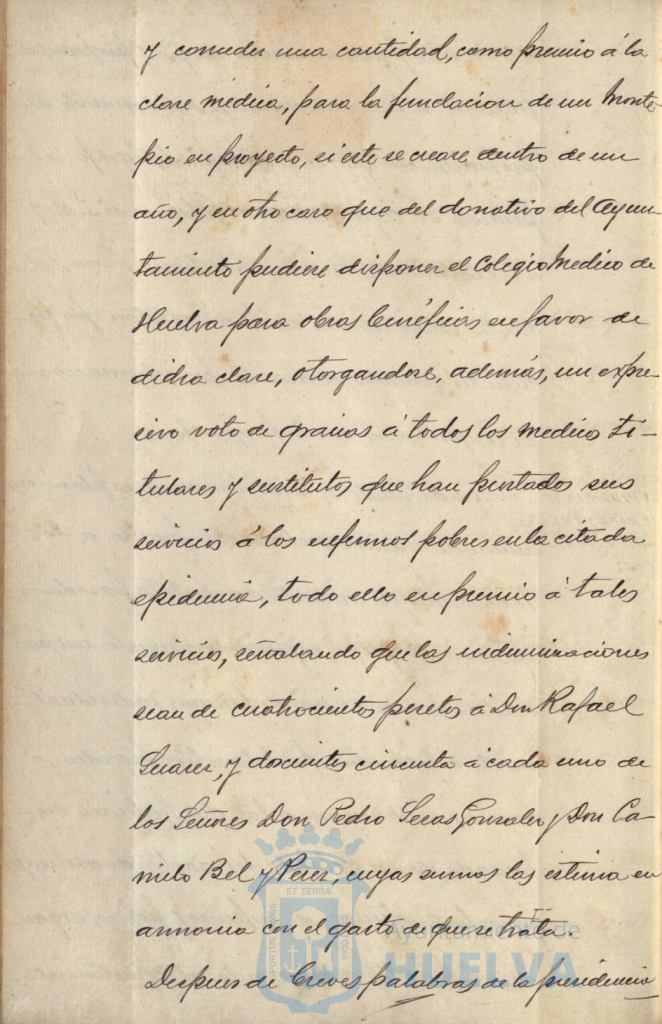 y conceder una cantidad, como premio á la
clase médica, para la fundacion de un Monte
pio en proyecto, si este se crease dentro de un
año, y en otro caso que del donativo del Ayun-
tamiento pudiere disponer el Colegio Medico de
Huelva para obras benéficas en favor de
dicha clase, otorgandose, además, un expre
sivo voto de gracias á todos los medicos ti-
tulares y sustitutos que han prestados sus
servicios á los enfermos pobres en la citada
epidemia, todo ello en premio á tales
servicios, señalando que las indemnizaciones
sean de cuatrocientas pesetas á Don Rafael
Suarez, y doscientas cincuenta á cada uno de
los Señores Don Pedro Seras Gonzalez y Don Ca-
milo Bel y Perez, cuyas sumas las estima en
armonia con el gasto de que se trata.
Despues de breves palabras de la presidencia
PORTUS MARIS
ET TERRAE
CUSTODIA
Ayuntamiento de
HUELVA